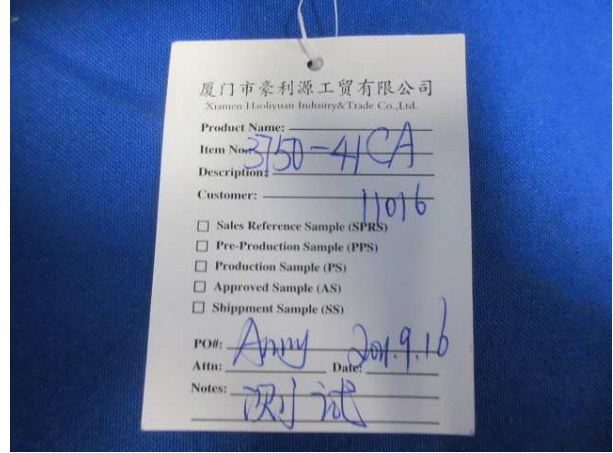 厦门市豪利源工贸有限公司
Xiamen Haoliyuan Industry&Trade Co.,Ltd.
Product Name:
Item No.: 3750-41CA
Description:
Customer: 11016
☐ Sales Reference Sample (SPRS)
☐ Pre-Production Sample (PPS)
☐ Production Sample (PS)
☐ Approved Sample (AS)
☐ Shippment Sample (SS)
PO#:
Attn: Anny Date: 2011.9.16
Notes: 测试